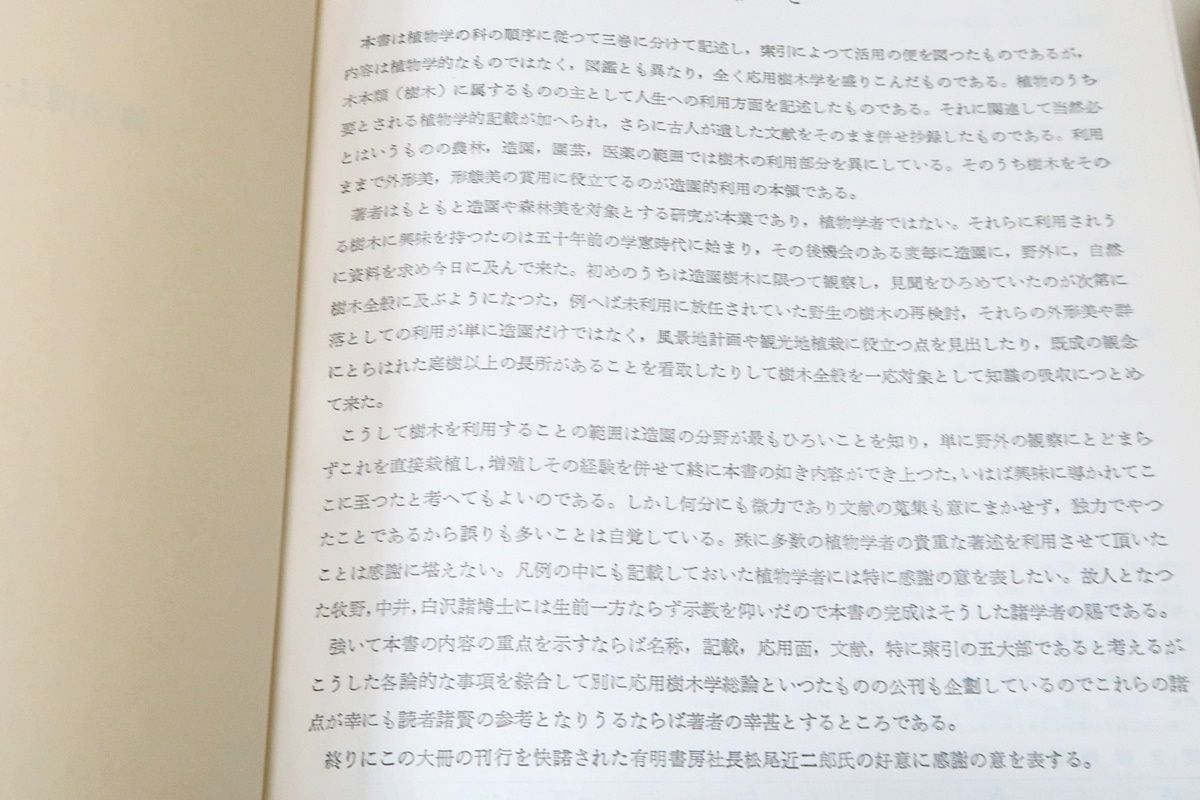 本書は植物学の科の順序に従つて三巻に分けて記述し，索引によつて活用の便を図つたものであるが，
内容は植物学的なものではなく，図鑑とも異なり，全く応用樹木学を盛りこんだものである。植物のうち
木本類（樹木）に属するものの主として人生への利用方面を記述したものである。それに関連して当然必
要とされる植物学的記載が加へられ，さらに古人が遺した文献をそのまま併せ抄録したものである。利用
とはいうものの農林，造園，園芸，医薬の範囲では樹木の利用部分を異にしている。そのうち樹木をその
ままで外形美，形態美の賞用に役立てるのが造園的利用の本領である。
著者はもともと造園や森林美を対象とする研究が本業であり，植物学者ではない。それらに利用されう
る樹木に興味を持つたのは五十年前の学窓時代に始まり，その後機会のある度毎に造園に，野外に，自然
に資料を求め今日に及んで来た。初めのうちは造園樹木に限つて観察し，見聞をひろめていたのが次第に
樹木全般に及ぶようになつた，例へば未利用に放任されていた野生の樹木の再検討，それらの外形美や群
落としての利用が単に造園だけではなく，風景地計画や観光地植栽に役立つ点を見出したり，既成の観念
にとらはれた庭樹以上の長所があることを看取したりして樹木全般を一応対象として知識の吸収につとめ
て来た。
こうして樹木を利用することの範囲は造園の分野が最もひろいことを知り，単に野外の観察にとどまら
ずこれを直接栽植し，増殖しその経験を併せて終に本書の如き内容ができ上つた，いはば興味に導かれてこ
こに至つたと考へてもよいのである。しかし何分にも微力であり文献の蒐集も意にまかせず，独力でやつ
たことであるから誤りも多いことは自覚している。殊に多数の植物学者の貴重な著述を利用させて頂いた
ことは感謝に堪えない。凡例の中にも記載しておいた植物学者には特に感謝の意を表したい。故人となつ
た牧野，中井，白沢諸博士には生前一方ならず示教を仰いだので本書の完成はそうした諸学者の賜である。
強いて本書の内容の重点を示すならば名称，記載，応用面，文献，特に索引の五大部であると考えるが
こうした各論的な事項を綜合して別に応用樹木学総論といつたものの公刊も企劃しているのでこれらの諸
点が幸にも読者諸賢の参考となりうるならば著者の幸甚とするところである。
終りにこの大冊の刊行を快諾された有明書房社長松尾近二郎氏の好意に感謝の意を表する。